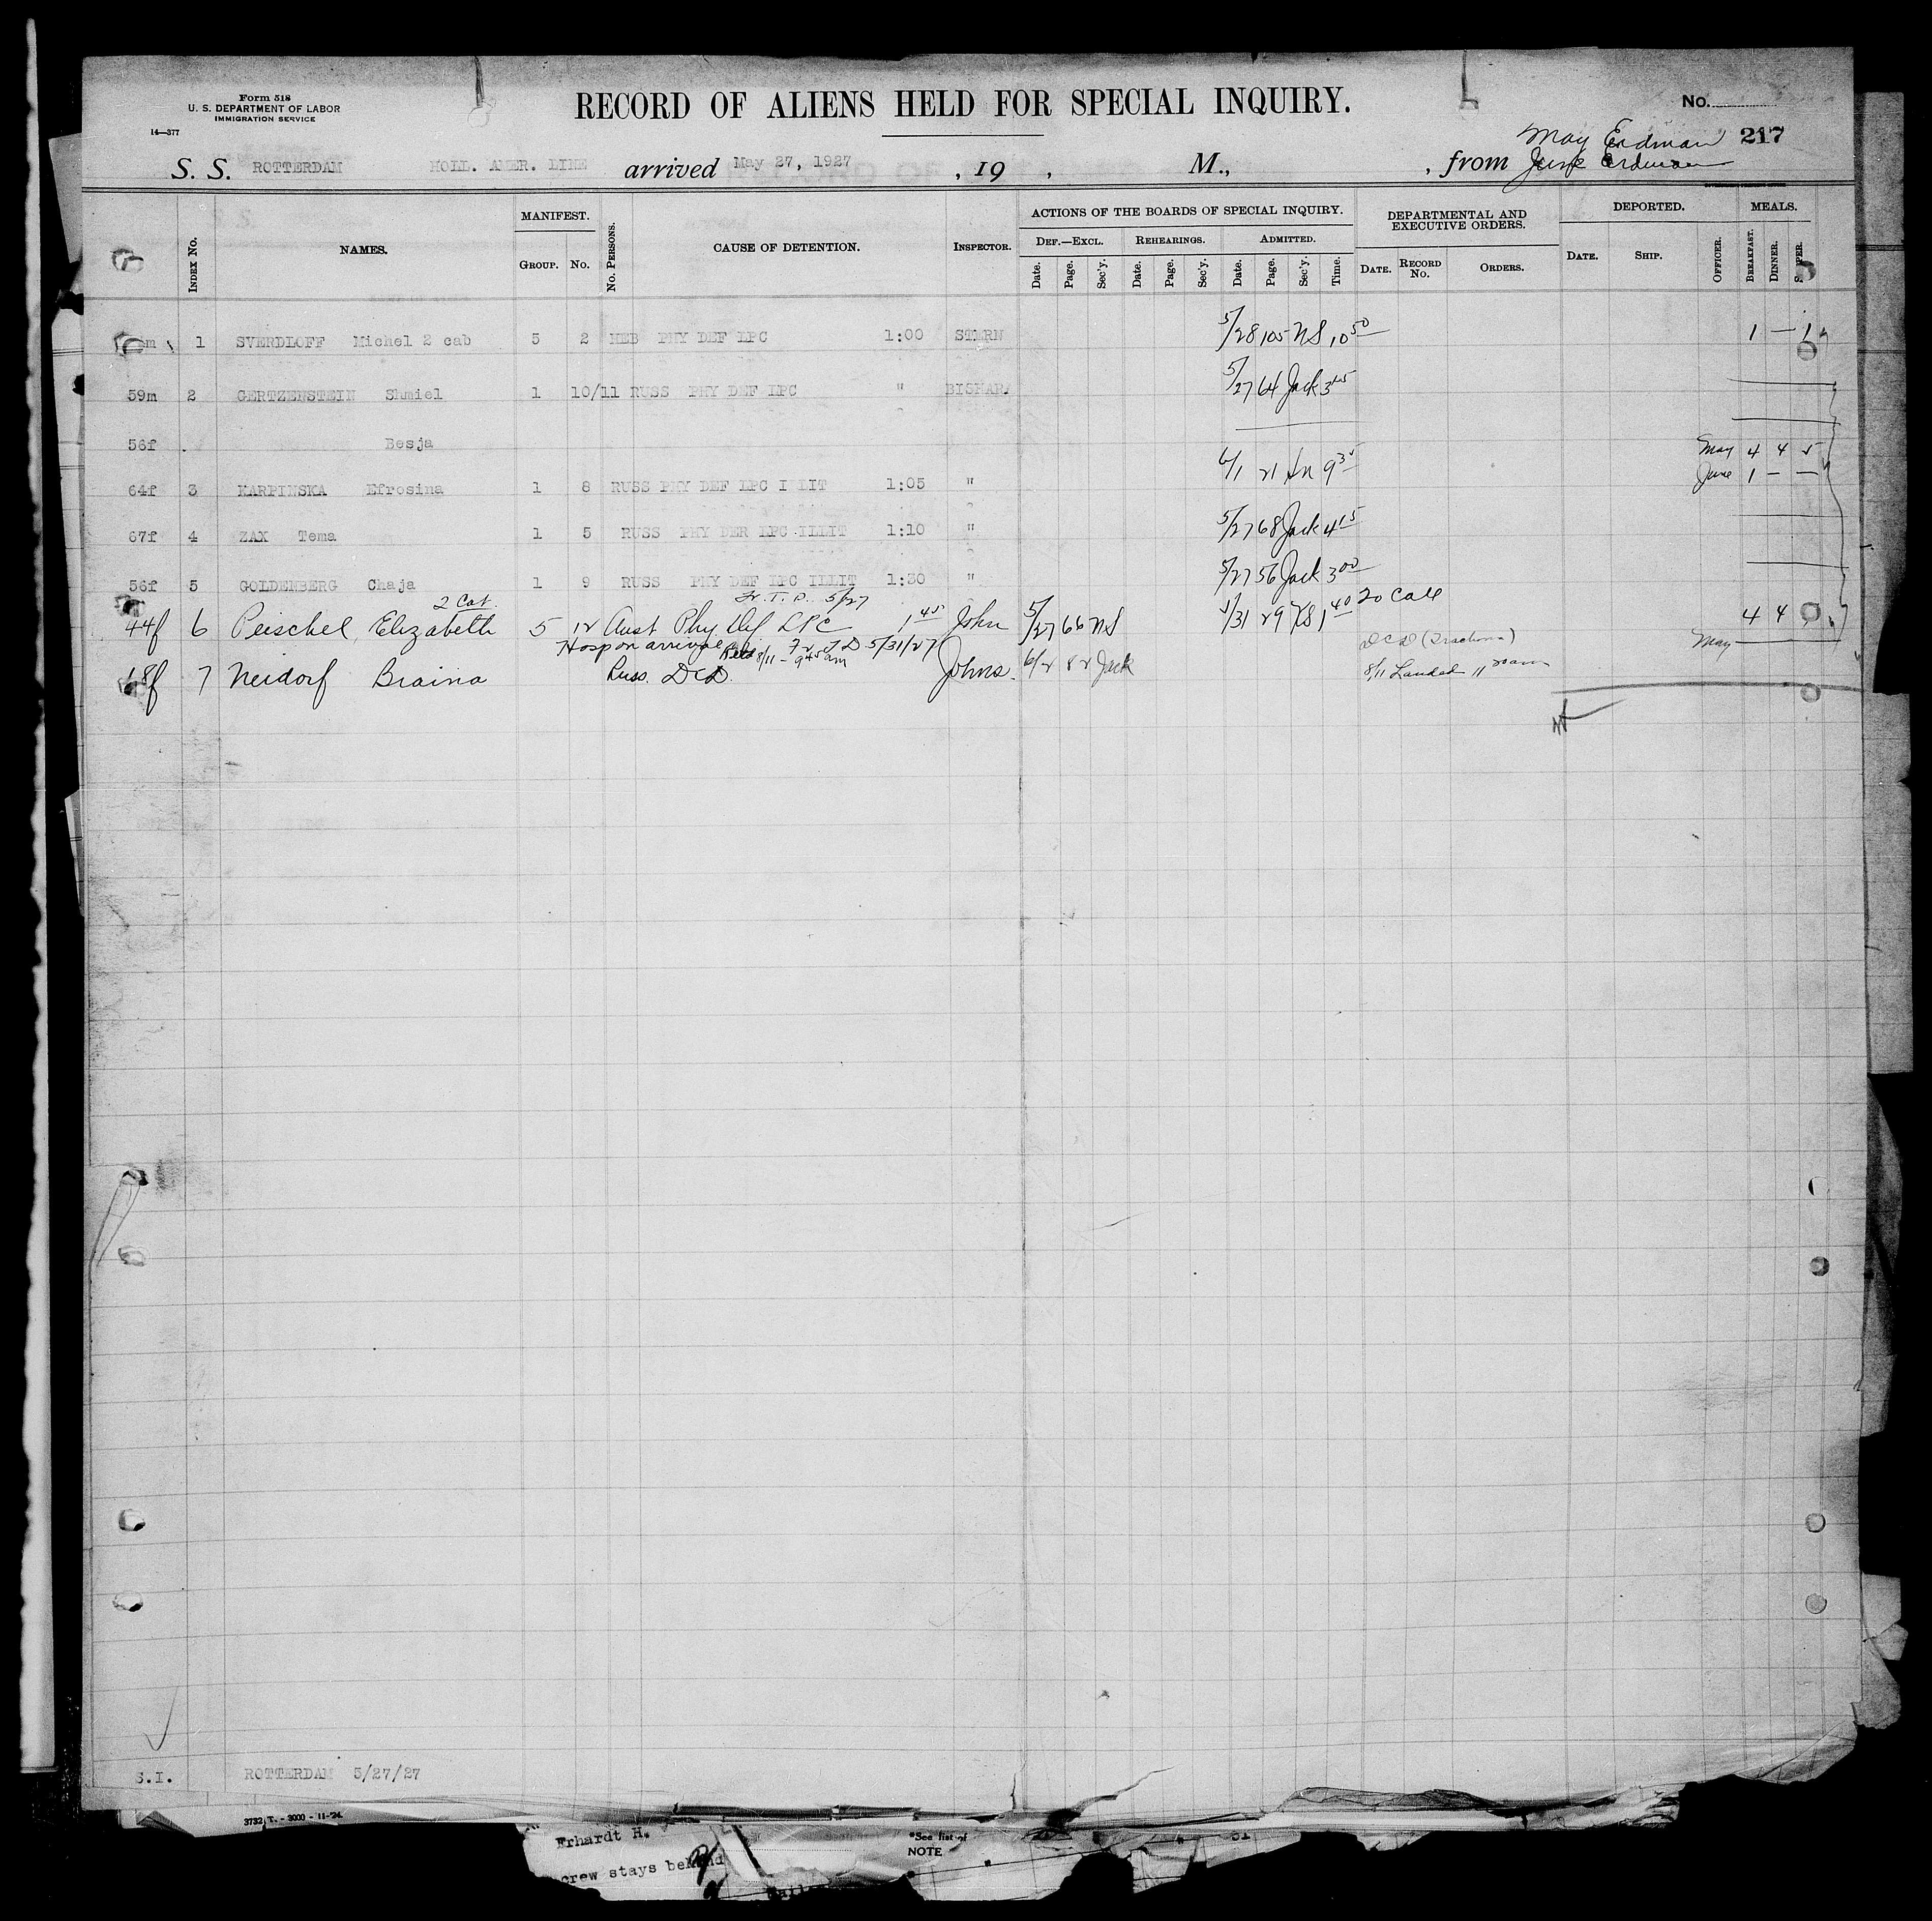 Form 518
U. S. DEPARTMENT OF LABOR
IMMIGRATION SERVICE
14—377
RECORD OF ALIENS HELD FOR SPECIAL INQUIRY.
No.
May Erdman 217
S. S. ROTTERDAM HOLL. AMER. LINE arrived May 27, 1927 , 19 , M., , from June Erdman
INDEX No. NAMES. MANIFEST. GROUP. No. No. PERSONS. CAUSE OF DETENTION. INSPECTOR. ACTIONS OF THE BOARDS OF SPECIAL INQUIRY. DEF.—EXCL. Date. Page. Sec'y. REHEARINGS. Date. Page. Sec'y. ADMITTED. Date. Page. Sec'y. Time. DEPARTMENTAL AND EXECUTIVE ORDERS. DATE. RECORD No. ORDERS. DEPORTED. DATE. SHIP. OFFICER. MEALS. BREAKFAST. DINNER. SUPPER.
m 1 SVERDLOFF Michel 2 cab 5 2 HEB PHY DEF LPC 1:00 STERN 5/28 105 NS 10 50 1 — 1
59m 2 GERTZENSTEIN Shmiel 1 10/11 RUSS PHY DEF LPC " BISHAR 5/27 64 Jack 3 45
56f Besja
May 4 4 5
64f 3 KARPINSKA Efrosina 1 8 RUSS PHY DEF LPC I LIT 1:05 " 6/1 21 9 30 June 1 — —
67f 4 ZAX Tema 1 5 RUSS PHY DER LPC ILLIT 1:10 " 5/27 68 Jack 4 15
56f 5 GOLDENBERG Chaja 1 9 RUSS PHY DEF LPC ILLIT 1:30 " 5/27 56 Jack 3 00
2 Cab. Fr. T.D. 5/27
44f 6 Peischel, Elizabeth 5 12 Aust Phy Def LPC 1 45 John 5/27 66 NS 5/31 29 1 40 To Call 4 4
Hosp on arrival Fr T D 5/31/27 DCD (Trachoma) May
8/11 - 9 45 am
18f 7 Neidorf Braina Russ. DCD. Johns. 6/2 82 Jack 8/11 Landed 11
S.I. ROTTERDAM 5/27/27
3732 T. - 3000 - 11-'24.
Erhardt H.
*See list of
NOTE
crew stays behind